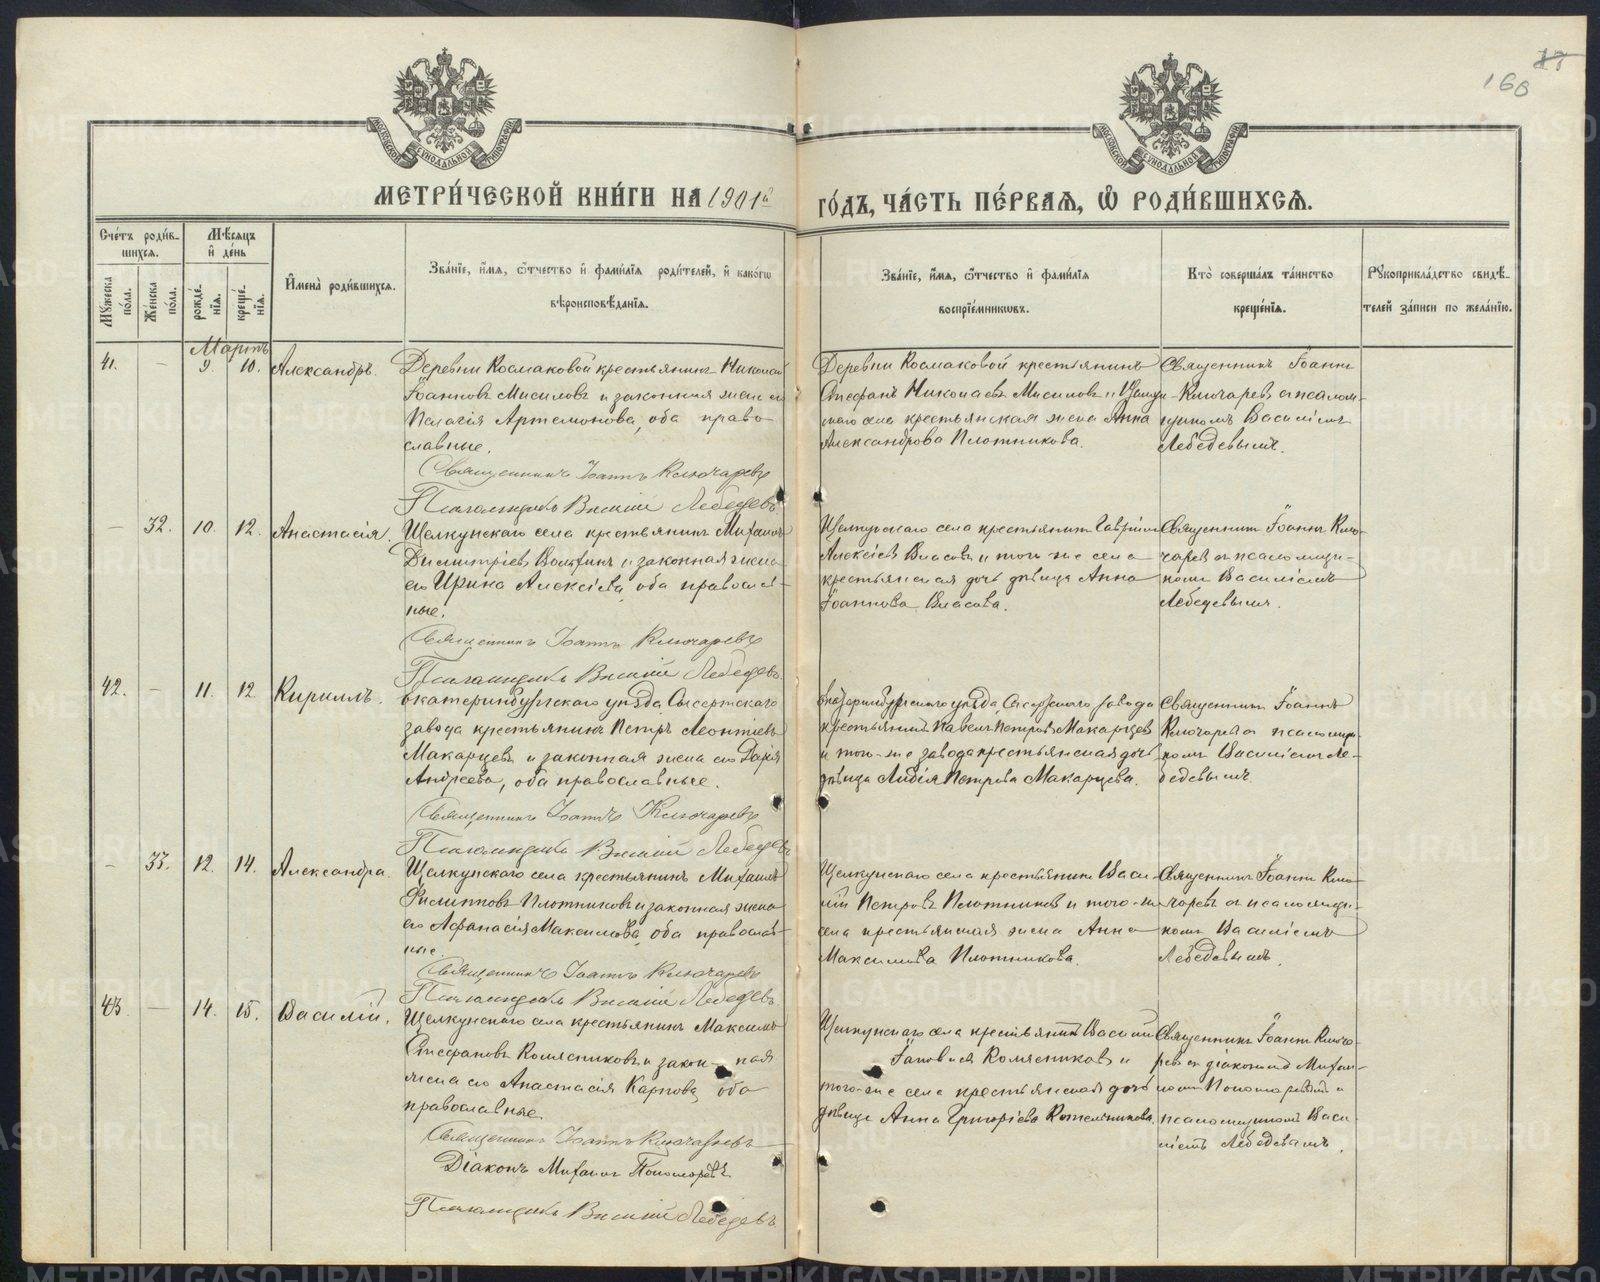 17
160
МОСКОВСКОЙ СѴНОДАЛЬНОЙ ТИПОГРАФІИ
МОСКОВСКОЙ СѴНОДАЛЬНОЙ ТИПОГРАФІИ
МЕТРИ́ЧЕСКОЙ КНИ́ГИ НА 1901й
ГО́ДЪ, ЧА́СТЬ ПЕ́РВАѦ, Ѡ҆ РОДИ́ВШИХСѦ.
Сче́тъ роди́в-
шихсѧ.
Мꙋ́жеска по́ла.
Же́нска по́ла.
Мѣ́сѧцъ
и҆ де́нь
рожде́нїѧ.
креще́нїѧ.
И҆мена̀ роди́вшихсѧ.
Зва́нїе, и҆́мѧ, ѻ҆́тчество и҆ фами́лїѧ роди́телей, и҆ како́гѡ
вѣроисповѣ́данїѧ.
Зва́нїе, и҆́мѧ, ѻ҆́тчество и҆ фами́лїѧ
воспрїе́мникѡвъ.
Кто̀ соверша́лъ та́инство
креще́нїѧ.
Рꙋкоприкла́дство свидѣ́-
телей за́писи по жела́нїю.
Мартъ
41. — 9. 10. Александръ.
Деревни Космаковой крестьянинъ Николай
Іоанновъ Мисиловъ и законная жена его
Пелагія Артемонова, оба право-
славные.
Священникъ Іоаннъ Ключаревъ
Псаломщикъ Василій Лебедевъ
Деревни Космаковой крестьянинъ
Стефанъ Николаевъ Мисиловъ и Щелкун-
скаго села крестьянская жена Анна
Александрова Плотникова.
Священникъ Іоаннъ
Ключаревъ съ псалом-
щикомъ Василіемъ
Лебедевымъ.
— 32. 10. 12. Анастасія.
Щелкунскаго села крестьянинъ Михаилъ
Димитріевъ и законная жена
его Ирина Алексіева, оба православ-
ные.
Священникъ Іоаннъ Ключаревъ
Псаломщикъ Василій Лебедевъ
Щелкунскаго села крестьянинъ Гавріилъ
Алексіевъ Власовъ и того-же села
крестьянская дочь дѣвица Анна
Іоаннова Власова.
Священникъ Іоаннъ Клю-
чаревъ съ псаломщи-
комъ Василіемъ
Лебедевымъ.
42. — 11. 12 Кириллъ.
Екатеринбургскаго уѣзда Сысертскаго
завода крестьянинъ Петръ Леонтіевъ
Макарцевъ и законная жена его Дарія
Андреева, оба православные.
Священникъ Іоаннъ Ключаревъ
Псаломщикъ Василій Лебедевъ
Екатеринбургскаго уѣзда, Сысертскаго завода
крестьянинъ Павелъ Петровъ Макарцевъ
и того-же завода крестьянская дочь
дѣвица Лидія Петрова Макарцева.
Священникъ Іоаннъ
Ключаревъ съ псаломщи-
комъ Василіемъ Ле-
бедевымъ.
— 33. 12. 14. Александра.
Щелкунскаго села крестьянинъ Михаилъ
Филипповъ Плотниковъ и законная жена
его Афанасія Максимова, оба православ-
ные.
Священникъ Іоаннъ Ключаревъ
Псаломщикъ Василій Лебедевъ
Щелкунскаго села крестьянинъ Васи-
лій Петровъ Плотниковъ и того-же
села крестьянская жена Анна
Максимова Плотникова.
Священникъ Іоаннъ Клю-
чаревъ съ псаломщи-
комъ Василіемъ
Лебедевымъ.
43. — 14. 15. Василій.
Щелкунскаго села крестьянинъ Максимъ
Стефановъ Колясниковъ и закон-ная
жена его Анастасія Карпова, оба
православные.
Священникъ Іоаннъ Ключаревъ
Діаконъ Михаилъ Пономаревъ
Псаломщикъ Василій Лебедевъ
Щелкунскаго села крестьянинъ Василій
Колясниковъ и
того-же села крестьянская дочь
дѣвица Анна Григоріева Котельникова.
Священникъ Іоаннъ Ключа-
ревъ съ діакономъ Михаи-
ломъ Пономаревымъ и
псаломщикомъ Васи-
ліемъ Лебедевымъ.